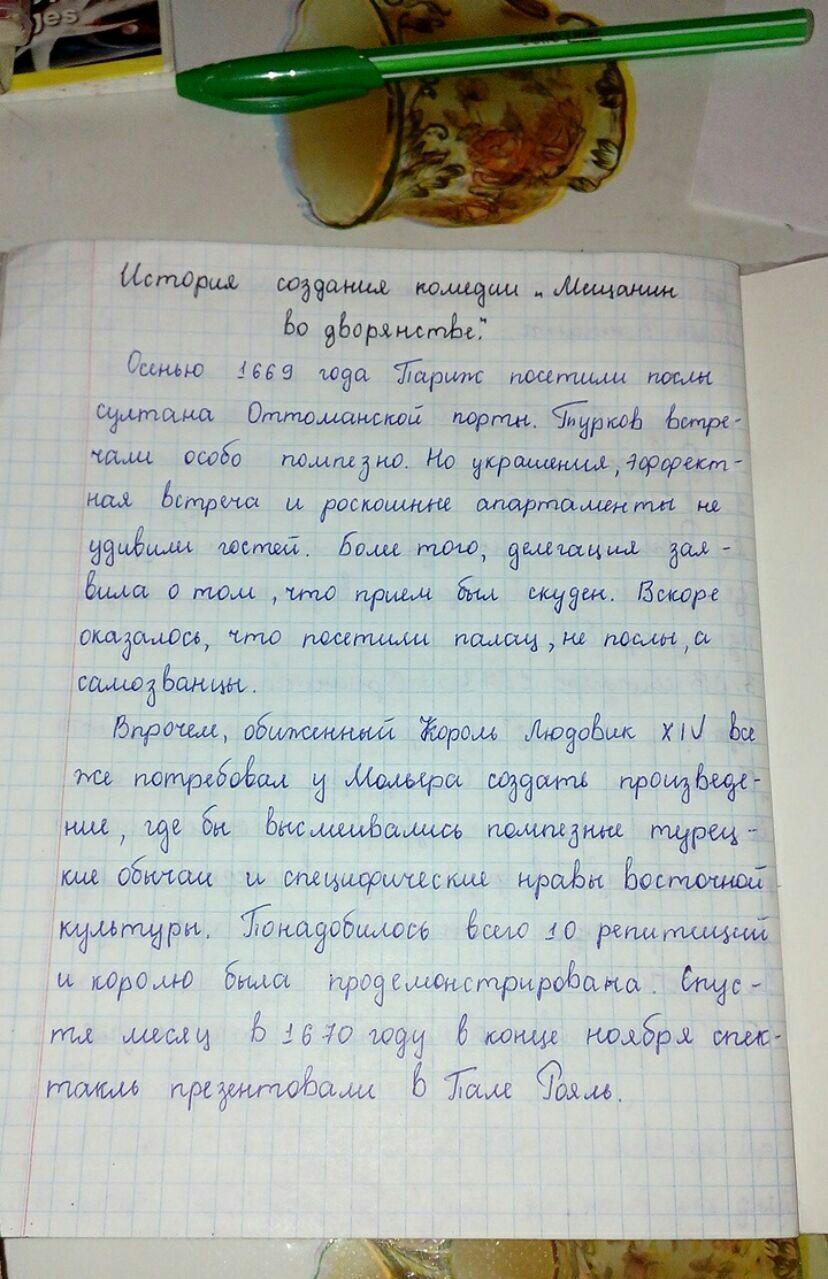 ges
История создания комедии „Мещанин
во дворянстве."
Осенью 1669 года Париж посетили послы
султана Оттоманской порты. Турков встре-
чали особо помпезно. Но украшения, эффект-
ная встреча и роскошные апартаменты не
удивили гостей. Более того, делегация зая-
вила о том, что прием был скуден. Вскоре
оказалось, что посетили палац, не послы, а
самозванцы.
Впрочем, обиженный Король Людовик XIV все
же потребовал у Мольера создать произведе-
ние, где бы высмеивались помпезные турец-
кие обычаи и специфические нравы восточной
культуры. Понадобилось всего 10 репитиций
и королю была продемонстрирована. Спус-
тя месяц в 1670 году в конце ноября спек-
такль презентовали в Пале Рояль.